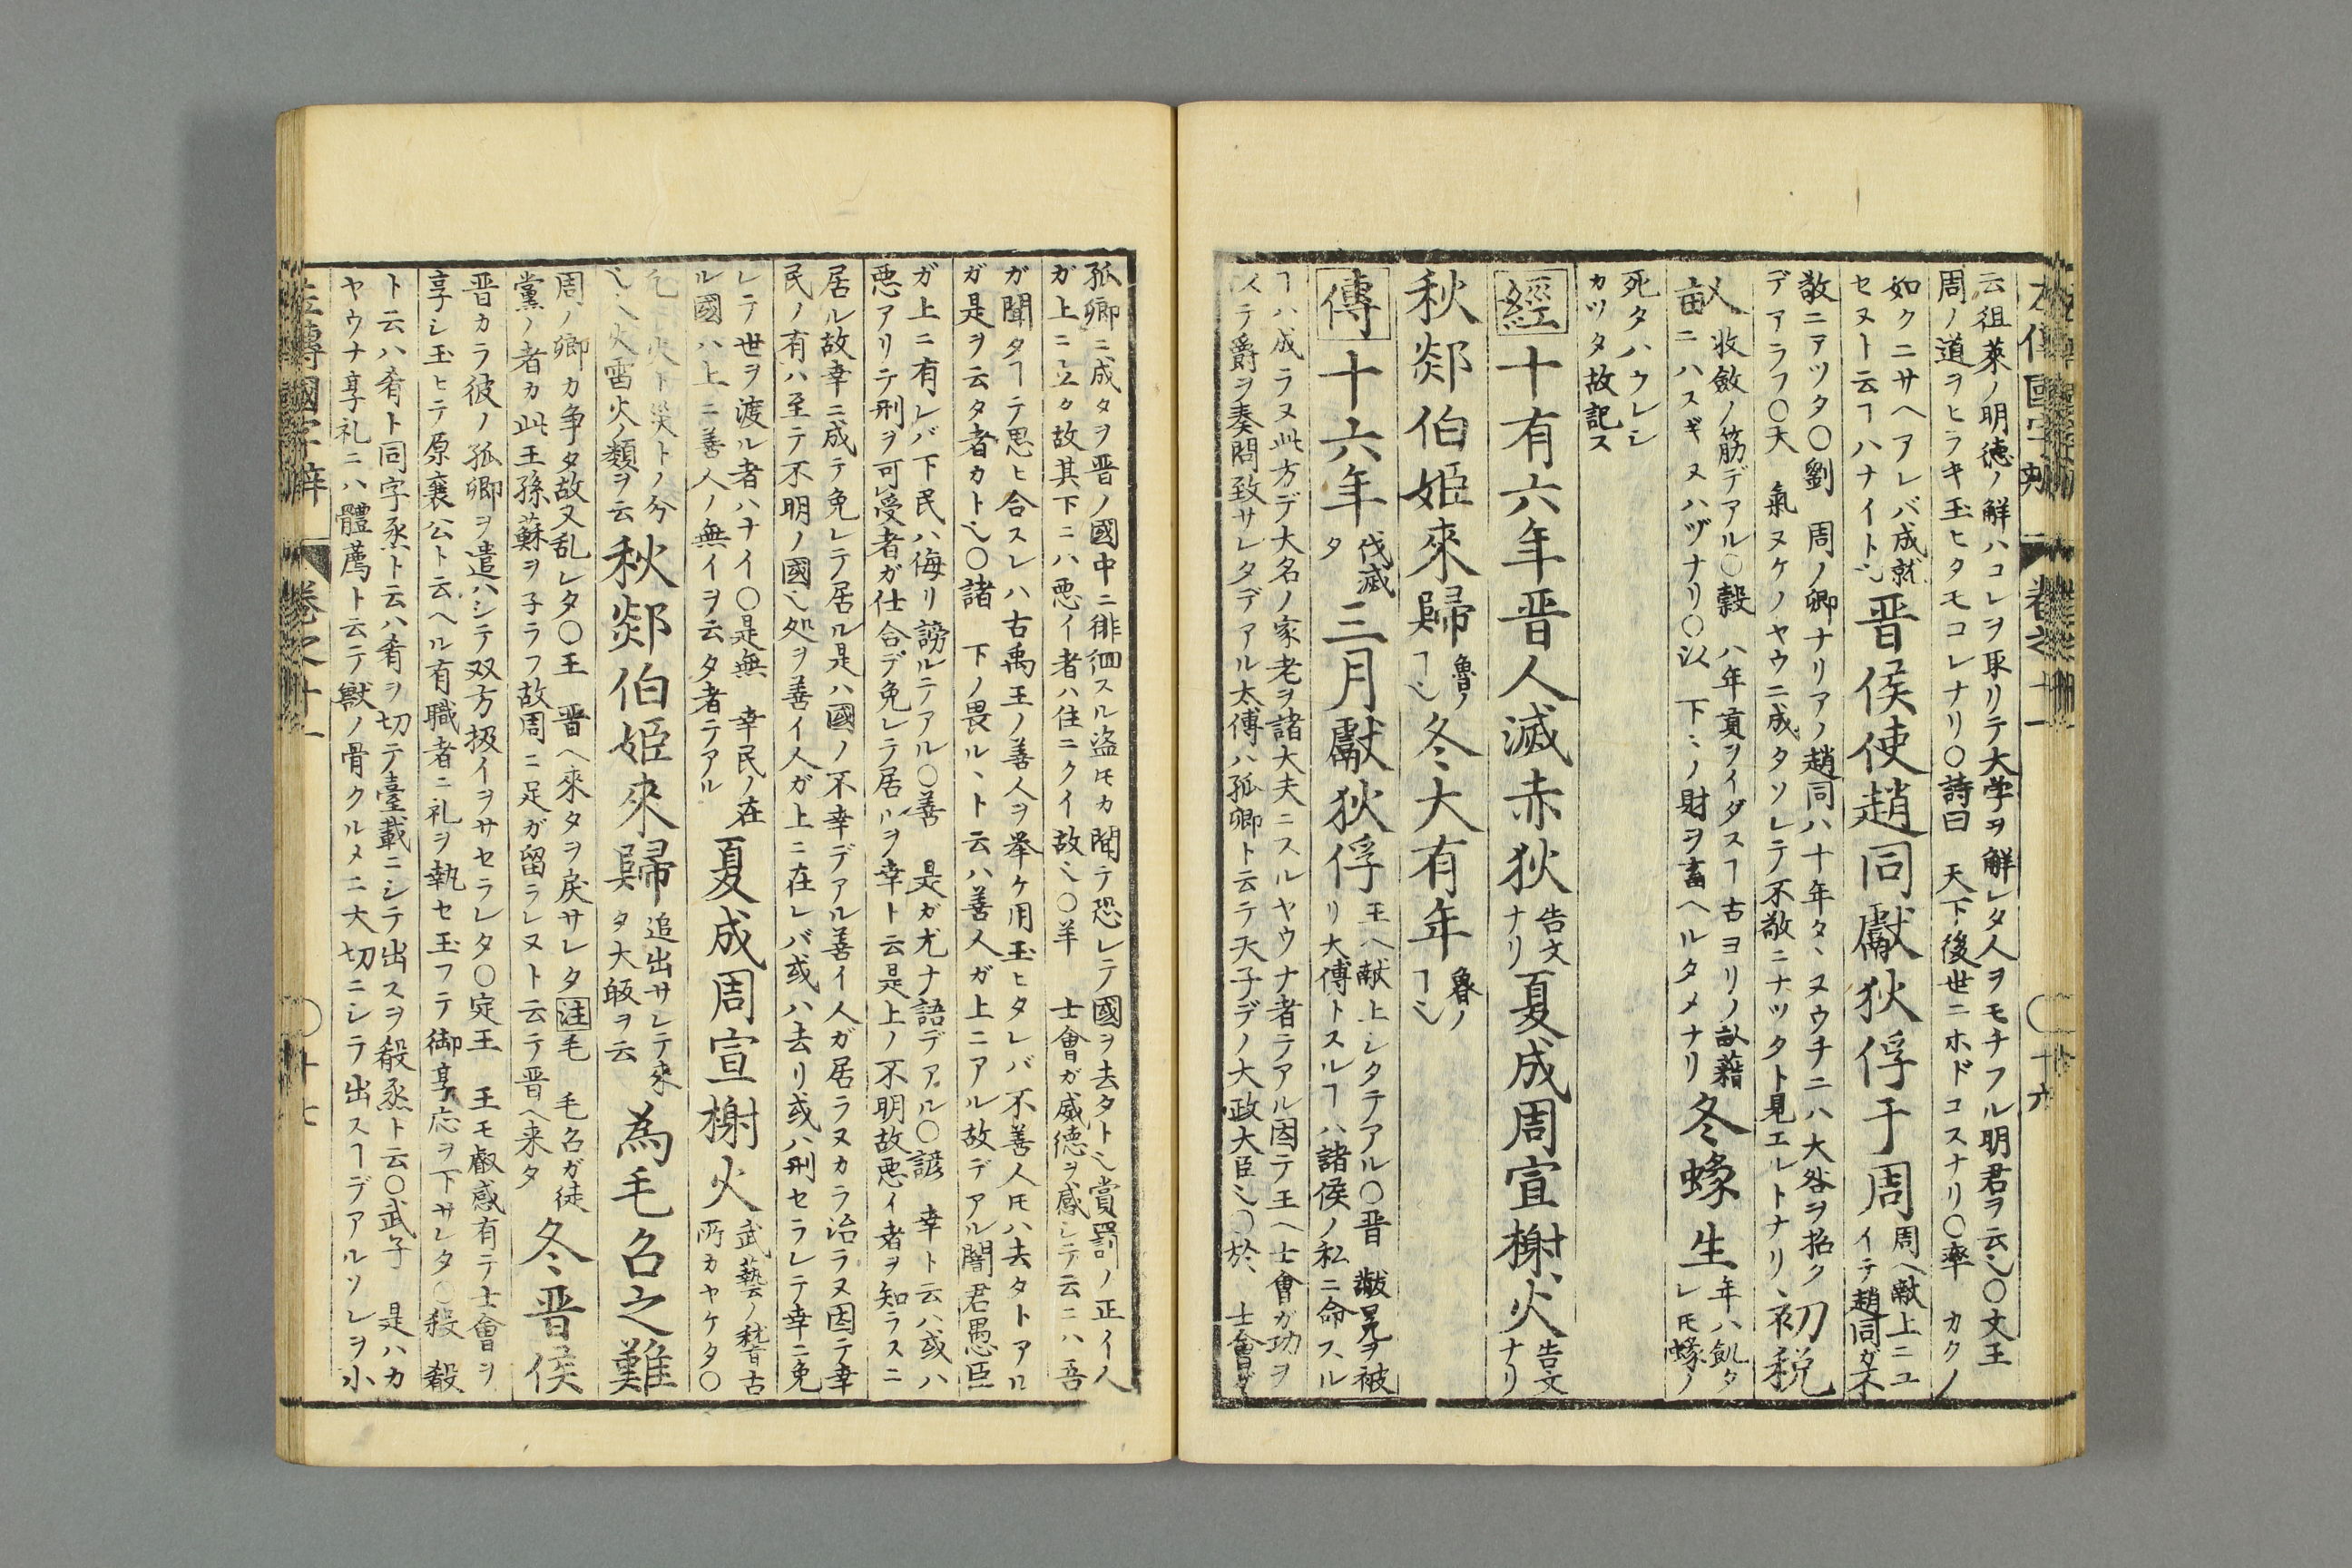 左傳國字解 卷之十一 〇十六
云徂萊ノ明徳ノ解ハコレヲ取リテ大学ヲ解レタ人ヲモチフル明君ヲ云〻〇文王
周ノ道ヲヒラキ玉ヒタモコレナリ〇詩曰 天下後世ニホドコスナリ〇率 カクノ
如クニサヘアレバ成就
セヌト云ヿハナイト〻
晋侯使趙同獻狄俘于周
周ヘ献上ニユ
イテ趙同ガ不
敬ニアツタ〇劉 周ノ卿ナリアノ趙同ハ十年タヽヌウチニハ大咎ヲ招ク
デアラフ〇天 氣ヌケノヤウニ成タソレテ不敬ニナツタト見エレトナリ
初税
畝
收斂ノ筋デアル〇穀 八年貢ヲイダスヿ古ヨリノ畝藉
ニハスギヌハヅナリ〇以 下〻ノ財ヲ畜ヘルタメナリ
冬蝝生
年ハ飢タ
レ𪜈蝝ノ
死タハウレシ
カツタ故記ス
經十有六年晋人滅赤狄
告文
ナリ
夏成周宣榭火
告文
ナリ
秋郯伯姬來歸
魯ノ
ヿ〻
冬大有年
魯ノ
ヿ〻
傳十六年
伐滅
タ
三月獻狄俘
王ヘ献上シタテアル〇晋 黻冕ヲ被
リ大傅トスルヿハ諸侯ノ私ニ命スル
ヿハ成ラヌ此方デ大名ノ家老ヲ諸大夫ニスルヤウナ者テアル因テ王ヘ士會ガ功ヲ
イテ爵ヲ奏聞致サレタデアル太傅ハ孤卿ト云テ天子デノ大政大臣〻〇於 士會ガ
孤卿ニ成タヲ晋ノ國中ニ徘徊スル盗𪜈カ聞テ恐レテ國ヲ去タト〻賞罰ノ正イ人
ガ上ニ立タ故其下ニハ悪イ者ハ住ニクイ故〻〇羊 士會ガ威徳ヲ感シテ云ニハ吾
ガ聞タヿテ思ヒ合スレハ古禹王ノ善人ヲ挙ケ用玉ヒタレバ不善人𪜈ハ去タトアル
ガ是ヲ云タ者カト〻〇諸 下ノ畏ルヽト云ハ善人ガ上ニアル故デアル闇君愚臣
ガ上ニ有レバ下民ハ侮リ謗ルニアル〇善 是ガ尤ナ語デアル〇諺 幸ト云ハ或ハ
悪アリテ刑ヲ可受者ガ仕合デ免レテ居ルヲ幸ト云是上ノ不明故悪イ者ヲ知ラスニ
居ル故幸ニ成テ免レテ居ル是ハ國ノ不幸デアル善イ人ガ居ラヌカラ治ラヌ因テ幸
民ノ有ハ至テ不明ノ國〻処ヲ善イ人ガ上ニ在レバ或ハ去リ或ハ刑セラレテ幸ニ免
レテ世ヲ渡ル者ハナイ〇是無 幸民ノ在
ル國ハ上ニ善人ノ無イヲ云タ者テアル
夏成周宣榭火
武藝ノ稽古
所カヤケタ〇
火ト災トノ分
〻火雷火ノ類ヲ云
秋郯伯姬來歸
追出サレテ来
タ大皈ヲ云
為毛召之難
周ノ卿カ争タ故又乱レタ〇王 晋ヘ來タヲ戻サレタ注毛 毛召ガ徒
黨ノ者カ此王孫蘇ヲ子ラフ故周ニ足ガ留ラレヌト云テ晋ヘ来タ
冬晋侯
晋カラ彼ノ孤卿ヲ遣ハシテ双方扱イヲサセラレタ〇定王 王モ叡感有テ士會ヲ
享シ玉ヒテ原襄公ト云ヘル有職者ニ礼ヲ執セ玉フテ御享応ヲ下サレタ〇殽 殽
ト云ハ肴ト同字烝ト云ハ肴ヲ切テ臺載ニシテ出スヲ殽烝ト云〇武子 是ハカ
ヤウナ享礼ニハ體薦ト云テ獣ノ骨クルメニ大切ニシテ出スヿデアルソレヲ小
左傳國字解 卷之十一 〇十七